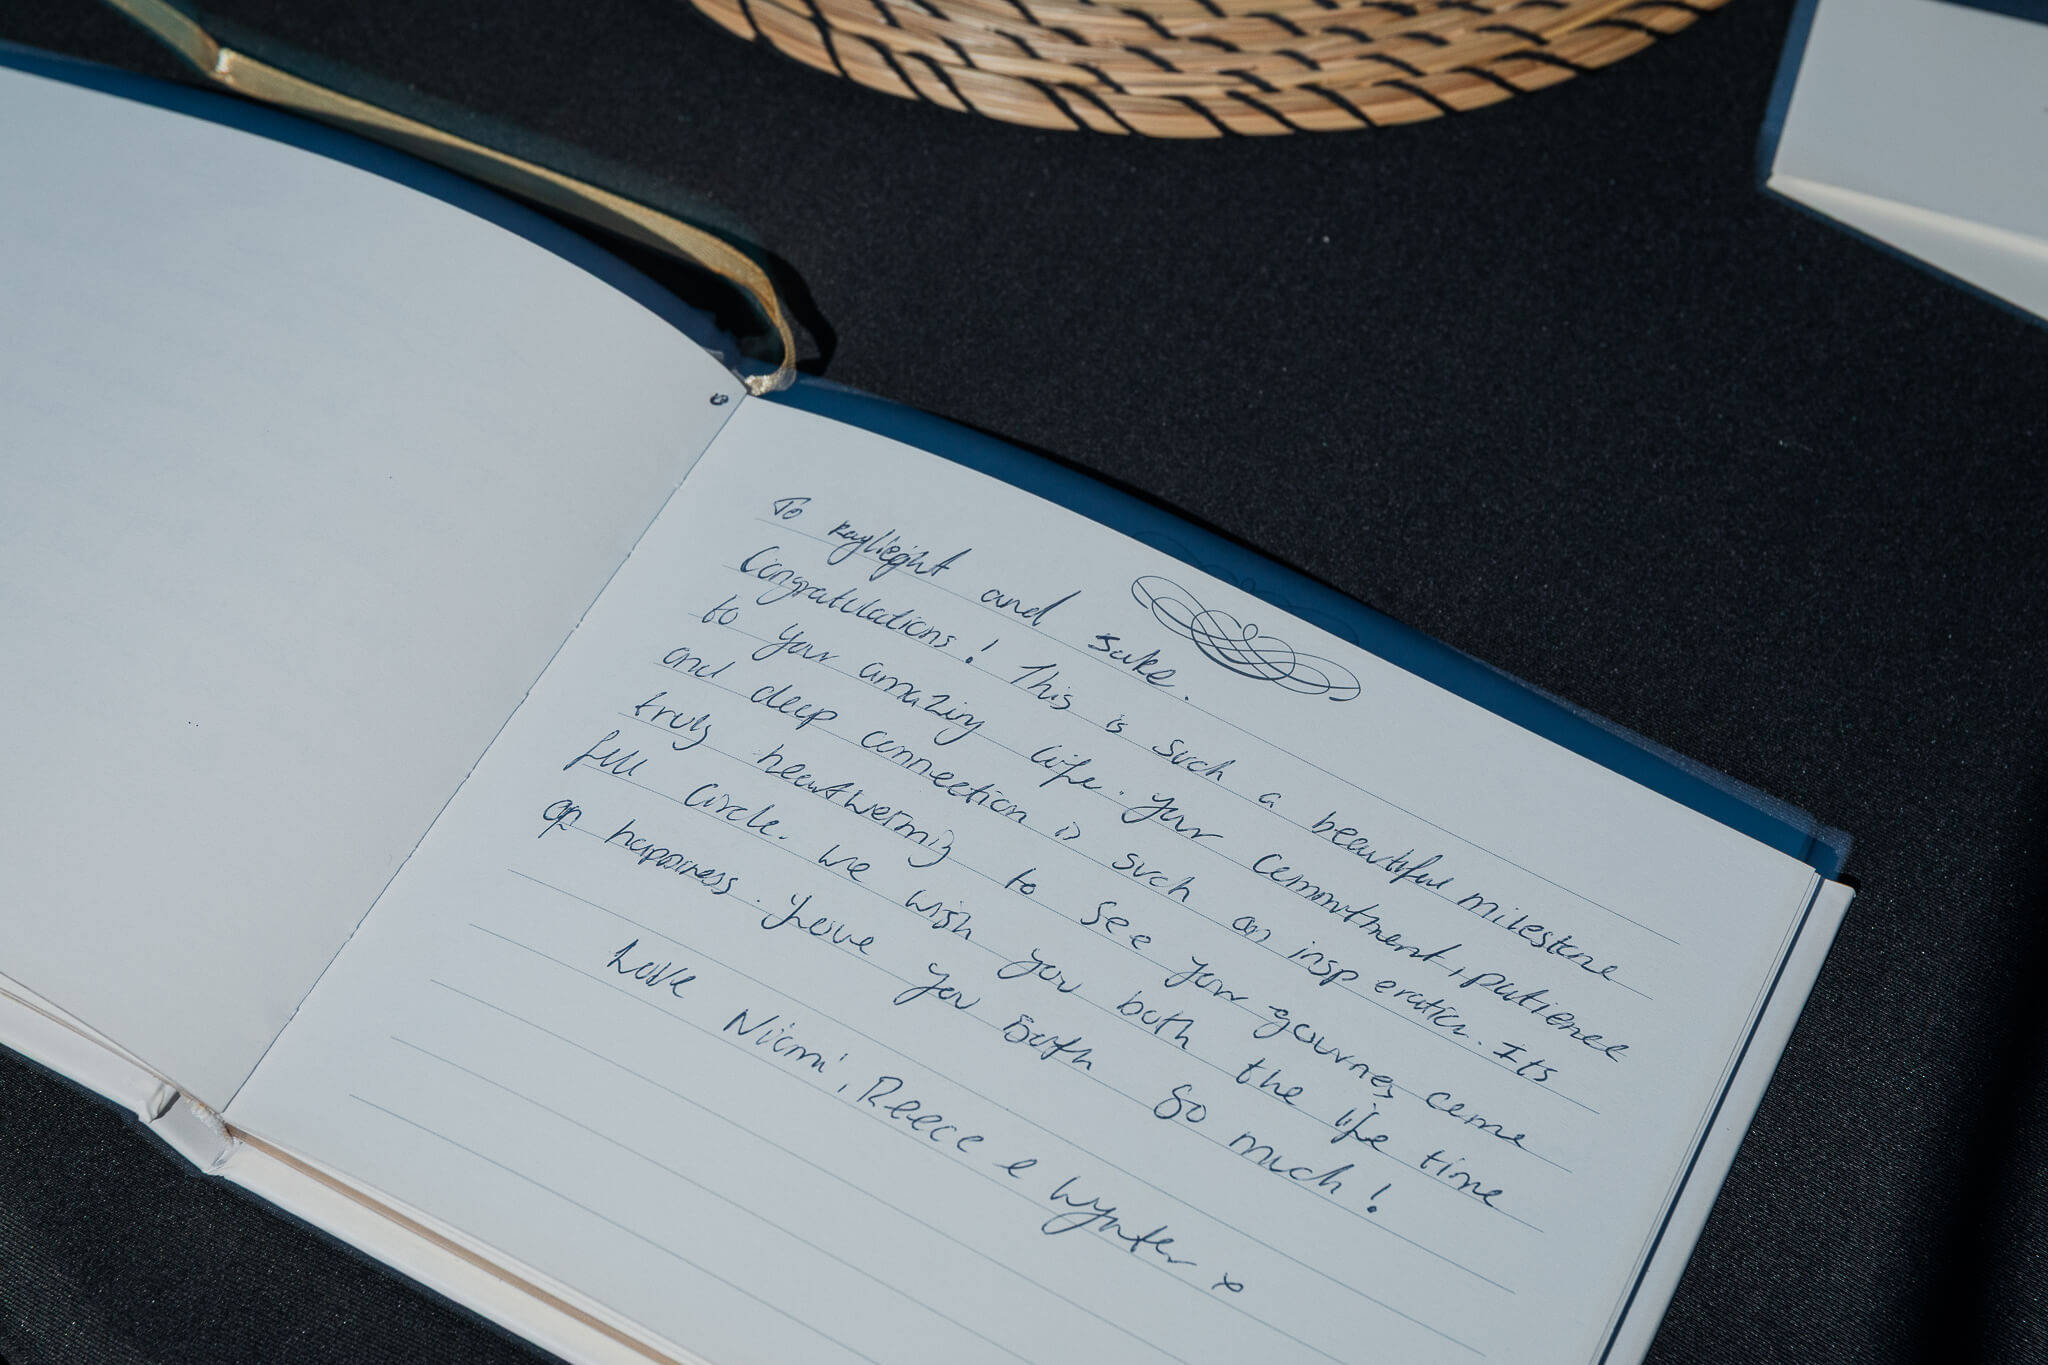 To Kaylieght and Jake.
Congratulations! This is such a beautiful milestone
to your amazing life. Your commitment, patience
and deep connection is such an insperation. Its
truly heartwerming to see your gourney come
full circle. We wish you both the life time
of happiness. Love you both so much!
Love Niomi, Reece & Wynter x